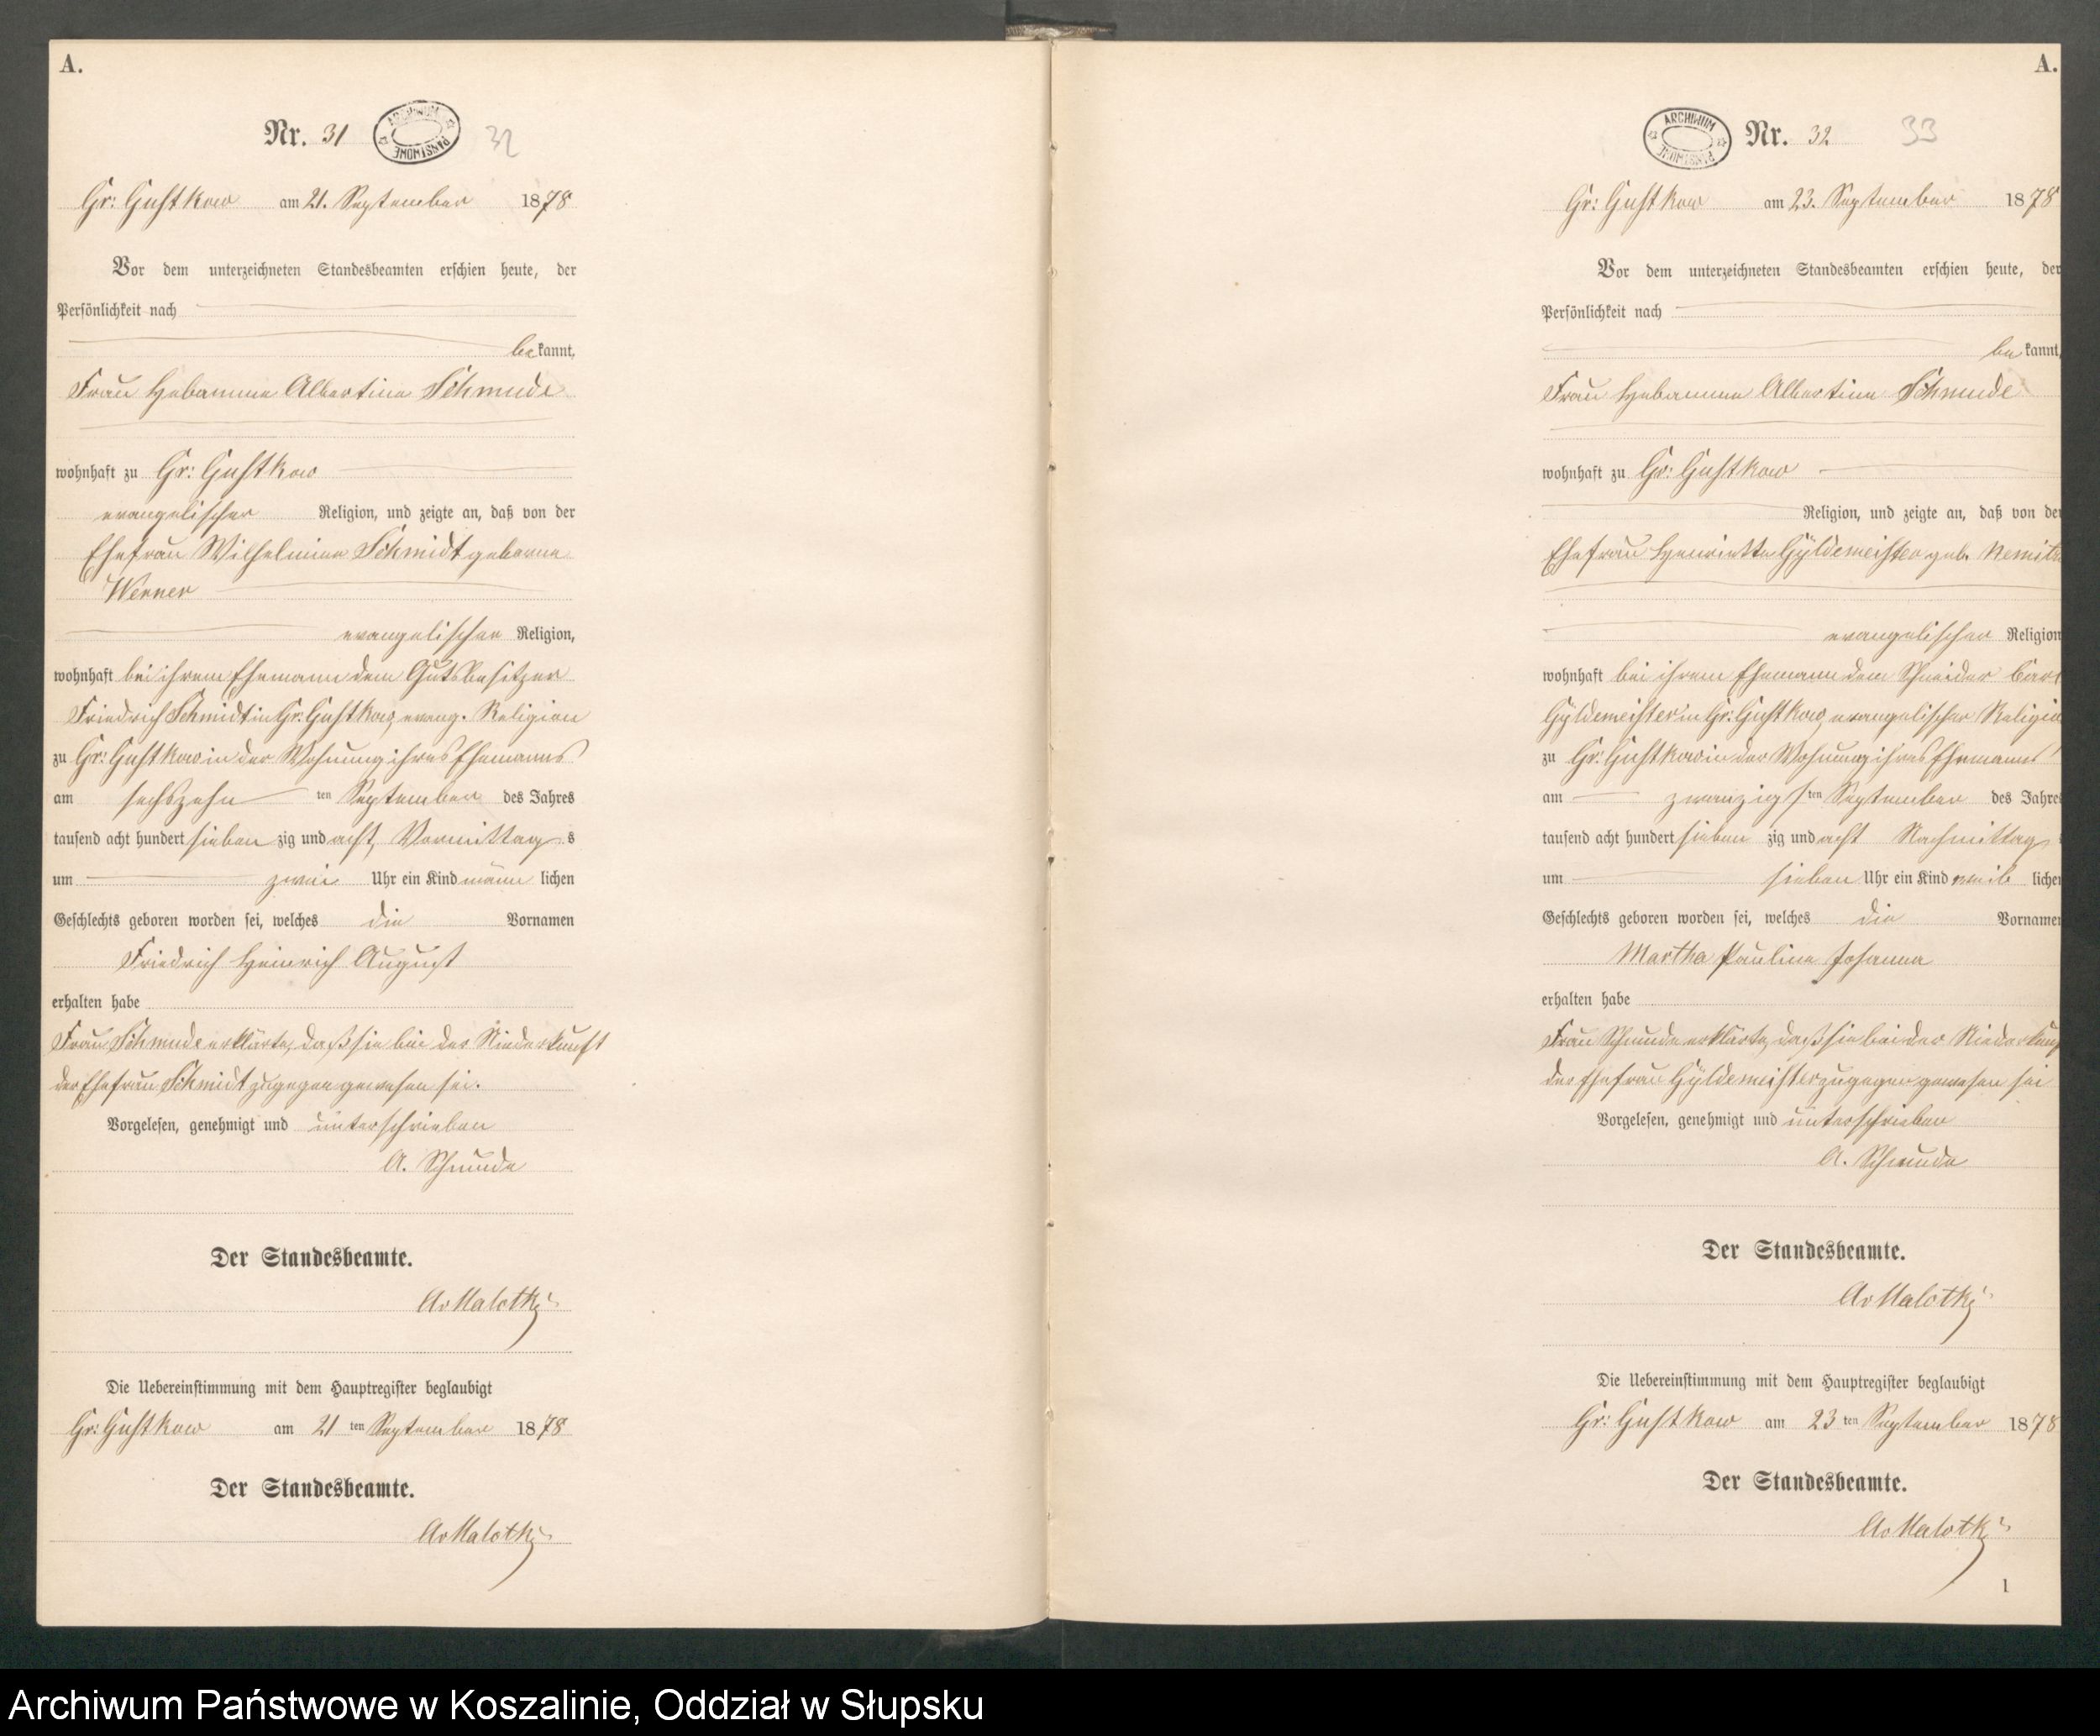 A.
Nr. 31
ARCHIWUM PAŃSTWOWE
32
Gr: Gustkow am 21. September 1878
Vor dem unterzeichneten Standesbeamten erschien heute, der
Persönlichkeit nach
bekannt,
Frau Hebamme Albertine Schmude
wohnhaft zu Gr: Gustkow
evangelischer Religion, und zeigte an, daß von der
Ehefrau Wilhelmine Schmidt geborne
Werner
evangelischer Religion,
wohnhaft bei ihrem Ehemann dem Gutsbesitzer
Friedrich Schmidt in Gr: Gustkow, evang. Religion
zu Gr: Gustkow in der Wohnung ihres Ehemanns
am sechszehn ten September des Jahres
tausend acht hundert sieben zig und acht, Vormittag s
um zwei Uhr ein Kind männ lichen
Geschlechts geboren worden sei, welches die Vornamen
Friedrich Heinrich August
erhalten habe
Frau Schmude erklärte, daß sie bei der Niederkunft
der Ehefrau Schmidt zugegen gewesen sei.
Vorgelesen, genehmigt und unterschrieben
A. Schmude
Der Standesbeamte.
Av Malotki
Die Uebereinstimmung mit dem Hauptregister beglaubigt
Gr: Gustkow am 21 ten September 1878
Der Standesbeamte.
Av Malotki
A.
ARCHIWUM PAŃSTWOWE
Nr. 32
33
Gr: Gustkow am 23. September 1878
Vor dem unterzeichneten Standesbeamten erschien heute, der
Persönlichkeit nach
be kannt,
Frau Hebamme Albertine Schmude
wohnhaft zu Gr: Gustkow
Religion, und zeigte an, daß von der
Ehefrau Henriette Gyldemeister geb. Nemitz
evangelischer Religion
wohnhaft bei ihrem Ehemann dem Schneider Carl
Gyldemeister in Gr: Gustkow, evangelischer Religion
zu Gr: Gustkow in der Wohnung ihres Ehemanns
am zwanzigs ten September des Jahres
tausend acht hundert sieben zig und acht Nachmittag
um sieben Uhr ein Kind weib lichen
Geschlechts geboren worden sei, welches die Vornamen
Martha Pauline Johanna
erhalten habe
Frau Schmude erklärte, daß sie bei der Niederkunft
der Ehefrau Gyldemeister zugegen gewesen sei
Vorgelesen, genehmigt und unterschrieben
A. Schmude
Der Standesbeamte.
Av Malotki
Die Uebereinstimmung mit dem Hauptregister beglaubigt
Gr: Gustkow am 23 ten September 1878
Der Standesbeamte.
Av Malotki
1
Archiwum Państwowe w Koszalinie, Oddział w Słupsku